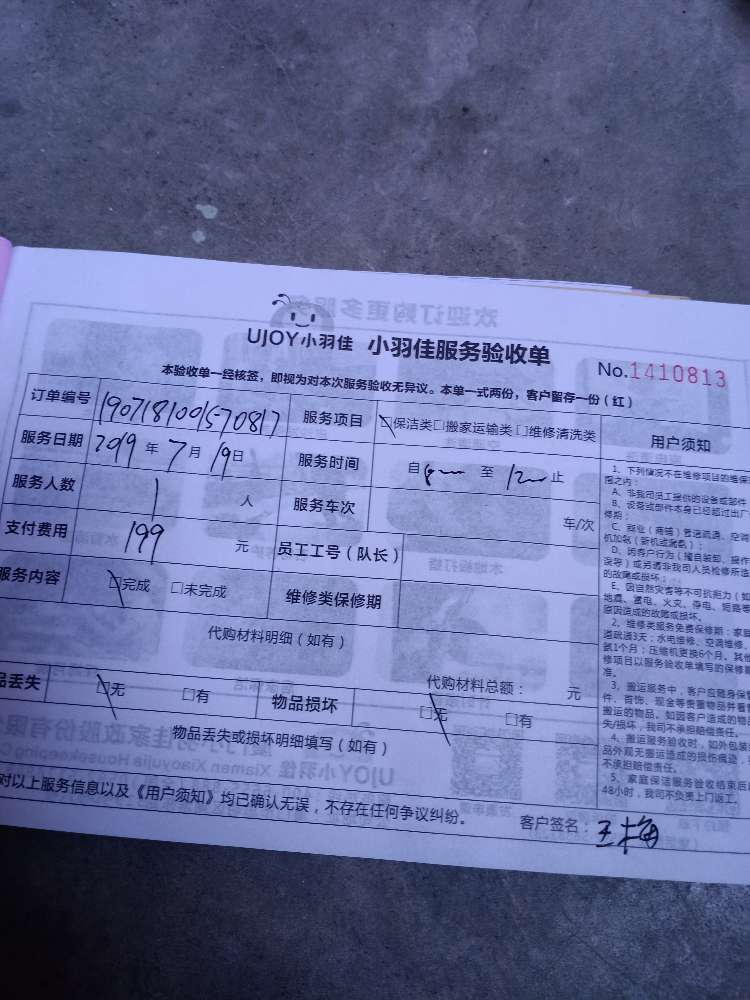 UJOY小羽佳 小羽佳服务验收单
No.1410813
本验收单一经核签，即视为对本次服务验收无异议。本单一式两份，客户留存一份（红）
订单编号 服务项目 □保洁类□搬家运输类□维修清洗类
用户须知
服务日期 2019 年 7 月 19 日 服务时间 自 至 止
服务人数 1 人 服务车次 车/次
支付费用 199 元 员工工号（队长）
服务内容 □完成 □未完成 维修类保修期
代购材料明细（如有）
代购材料总额： 元
品丢失 □无 □有 物品损坏 □无 □有
物品丢失或损坏明细填写（如有）
对以上服务信息以及《用户须知》均已确认无误，不存在任何争议纠纷。
客户签名：王梅
1、下列情况不在维修项目的维保
围之内：
A、非我司员工提供的设备或部件
B、设备或部件本身已经超过出厂
修期；
C、商业（商铺）管道疏通、空调
机加氨（新机或漏氨）
D、因客户行为（擅自装卸、操作
误等）或另请非我司人员检修所造
的故障或损坏；
E、因自然灾害等不可抗拒力（如
地震、雷电、火灾、停电、短路等
原因造成的故障或损坏。
2、维修类服务免费保修期：家庭
道疏通3天；水电维修、空调维修、
氨1个月；压缩机更换6个月。其他
修项目以服务验收单填写的保修期
准。
3、搬运服务中，客户应随身保管
件、首饰、现金等贵重物品并看管
搬运的物品。如因客户造成的物品
失/损坏，我司不承担赔偿责任。
4、搬运服务验收时，如外包装
品外观无搬运造成的损伤痕迹，
不承担赔偿责任。
5、家庭保洁服务验收结束后超
48小时，我司不负责上门返工。